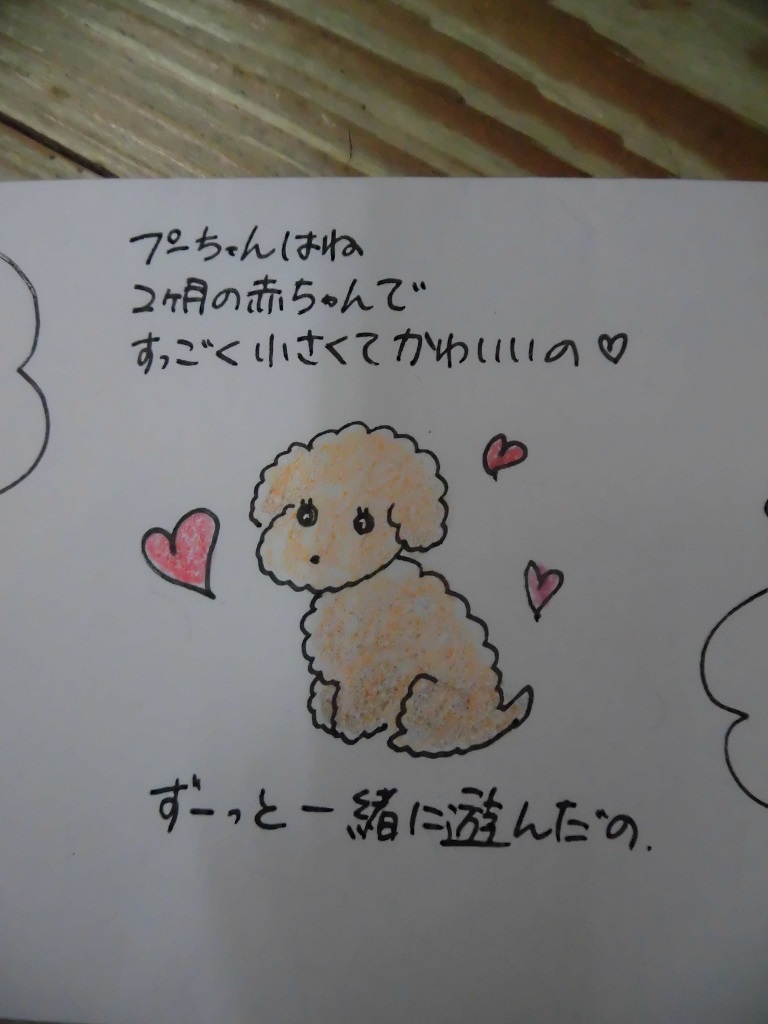 プーちゃんはね
2ヶ月の赤ちゃんで
すっごく小さくてかわいいの♡
ずーっと一緒に遊んだの.